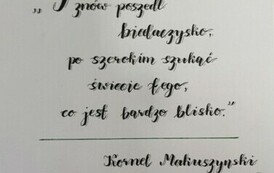 „ I znów poszedł
biedaczysko,
po szerokim szukać
świecie tego,
co jest bardzo blisko.”
Kornel Makuszyński